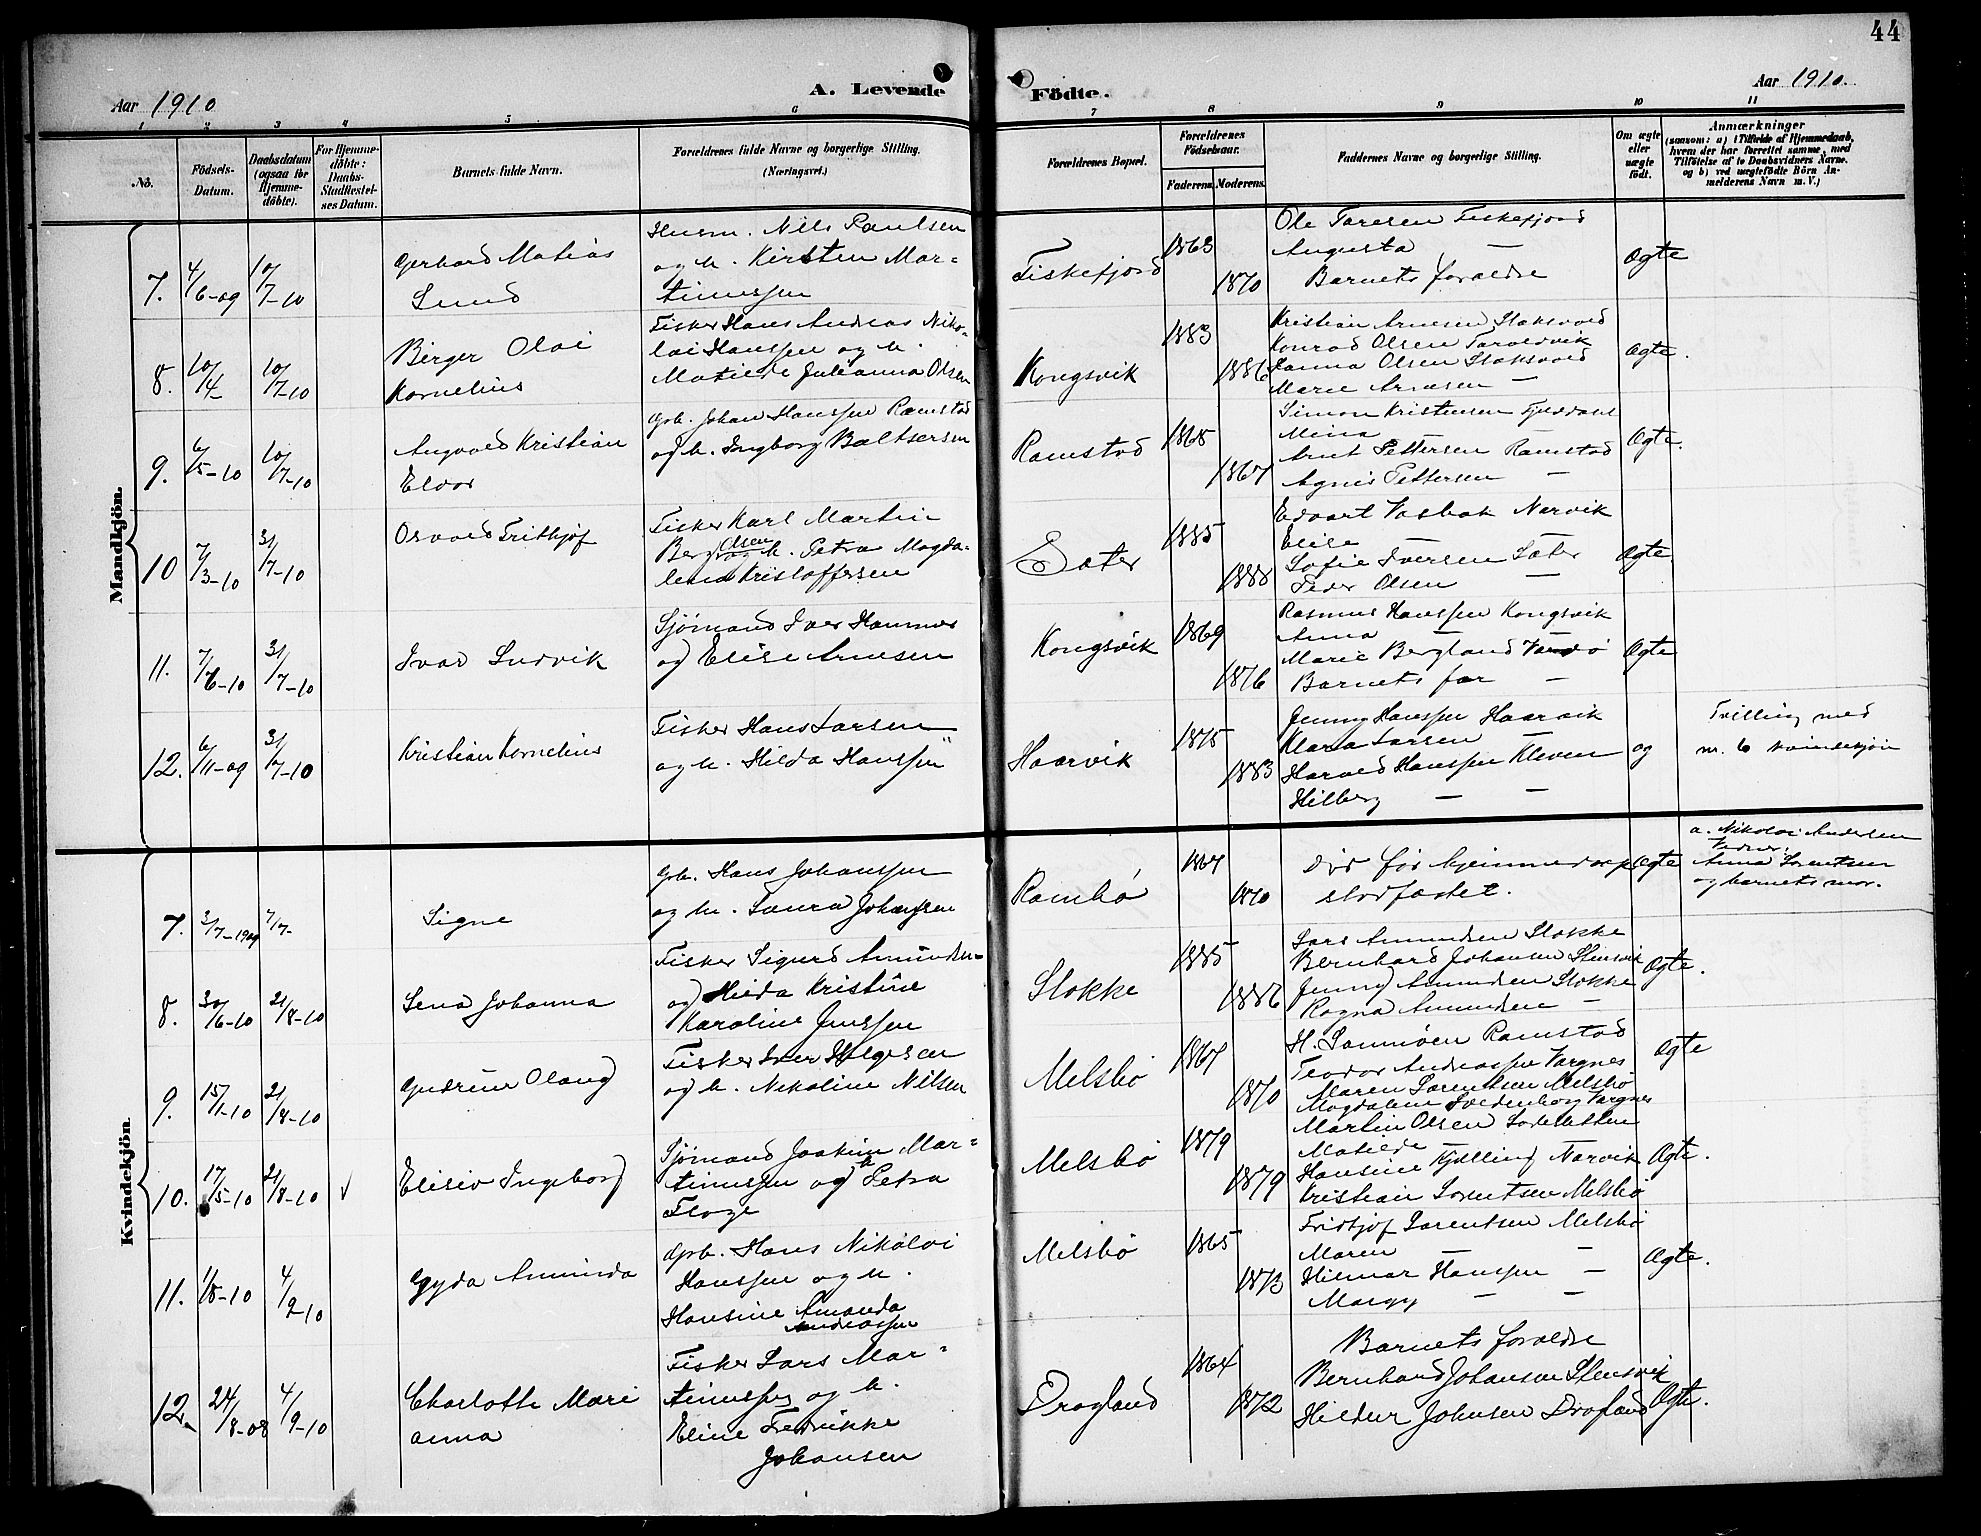 44
Aar 1910
A. Levende
Födte.
Aar 1910.
1 2 3 4 5 6 7 8 9 10 11
No.
Födsels-
Datum.
Daabsdatum
(ogsaa for
Hjemme-
döbte).
For Hjemme-
döbte:
Daabs-
Stadfæstel-
ses Datum.
Barnets fulde Navn.
Forældrenes fulde Navne og borgerlige Stilling.
(Næringsvei.)
Forældrenes Bopæl.
Forældrenes
Födselsaar.
Faderens. Moderens.
Faddernes Navne og borgerlige Stilling.
Om ægte
eller
uægte
födt.
Anmærkninger
(saasom: a) i Tilfælde af Hjemmedaab,
hvem der har forrettet samme, med
Tilföielse af to Daabsvidners Navne.
og b) ved uægtefödte Börn An-
melderens Navn m. V.)
Mandkjön.
7. 4/6-09 10/7-10
Gerhard Matias
Lund
Husm. Nils Paulsen
og h. Kirsten Mar-
tinussen
Fiskefjord
1863
1870
Ole Taresen Fiskefjord
Augusta —
Barnets forældre
Ægte
8. 10/4 10/7-10
Birger Olai
Kornelius
Fisker Hans Andreas Niko-
lai Hanssen og h.
Matilde Julianna Olsen
Kongsvik
1883
1886
Kristian Arnesen Stoksvold
Konrad Olsen
Olsen Stoksvold
Marie Arnesen —
Ægte.
9. 6/5-10 10/7-10
Angvald Kristian
Eldor
Grb. Johan Hanssen Ramstad
og h. Ingborg Baltsersen
Ramstad
1865
1867
Simon Kristensen
Mina
Arnt Pettersen Ramstad
Agnes Pettersen —
Ægte.
10 7/3-10 31/7-10
Osvald Frithjof
Fisker Karl Martin
Berg Olsen og h. Petra Magda-
lena Kristoffersen
Sæter
1885
1888
Edvart Vasbak Narvik
Elise —
Sofie Iversen Sæter
Peder Olsen —
Ægte.
11. 7/6-10 31/7-10
Ivar Ludvik
Sjømand Iver Hammer
og Elise Arnesen
Kongsvik
1869
1876
Rasmus Hanssen Kongsvik
Anna —
Marie Bergland Vardø
Barnets far —
Ægte
12. 6/11-09 31/7-10
Kristian Kornelius
Fisker Hans Larsen
og h. Hilda Hanssen
Haarvik
1875
1883
Jenny Hanssen Haarvik
Klara Larsen —
Harald Hanssen Kleven
Hilberg — —
og
Tvilling med
nr. 6 kvindekjön
Kvindekjön.
7. 3/7-1909 7/7-
Signe
Grb. Hans Johanssen
og h. Laura Johanssen
Rambø
1867
1870
Død før hjemmedaap
stadfæstet.
Ægte
a. Nikolai Andersen
Vidner:
Anna Lorentsen
og barnets mor.
8. 30/6-10 21/8-10
Lena Johanna
Fisker Sigurd Amundsen
og Hilda Kristine
Karoline Jenssen
Slokke
1885
1886
Lars Amundsen Slokke
Bernhard Johansen Stensvik
Jenny Amundsen Slokke
Ragna Amundsen —
Ægte.
9. 15/1-10 21/8-10
Gudrun Olaug
Fisker Iver Helgesen
og h. Nikoline Nilsen
Melsbø
1867
1870
H. Sannøen Ramstad
Teodor Andreassen Vargnes
Maren Lorentsen Melsbø
Magdalena Svedenborg Vargnes
Ægte
10. 17/5-10 21/8-10 √
Elisiv Ingeborg
Sjømand Joakim Mar-
tinussen og h. Petra
Floge
Melsbø
1879
1879
Martin Olsen
Matilde
Hansine Kjelling Narvik
Kristian Lorentsen Melsbø
Ægte.
11. 1/5-10 4/9-10
Gyda Aminda
Grb. Hans Nikolai
Hanssen og h.
Hansine Amanda
Andreassen
Melsbø
1865
1873
Fridtjof Lorentsen Melsbø
Maren — —
Hilmar Hanssen —
Margy — —
Ægte.
12. 24/8-08 4/9-10
Charlotte Marie
Anna
Fisker Lars Mar-
tinussen og h.
Eline Fredrikke
Johansen
Dragland
1864
1872
Barnets forældre
Bernhard Johansen Stensvik
Hildur Johnsen Dragland
Ægte.